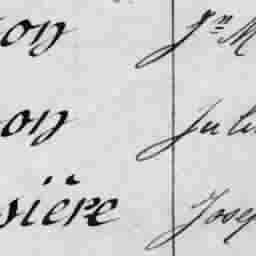 on Jn M
on Juli
sière Josep